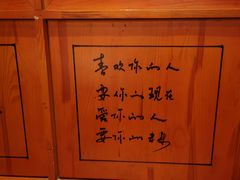 喜欢你的人
要你的现在
爱你的人
要你的未来